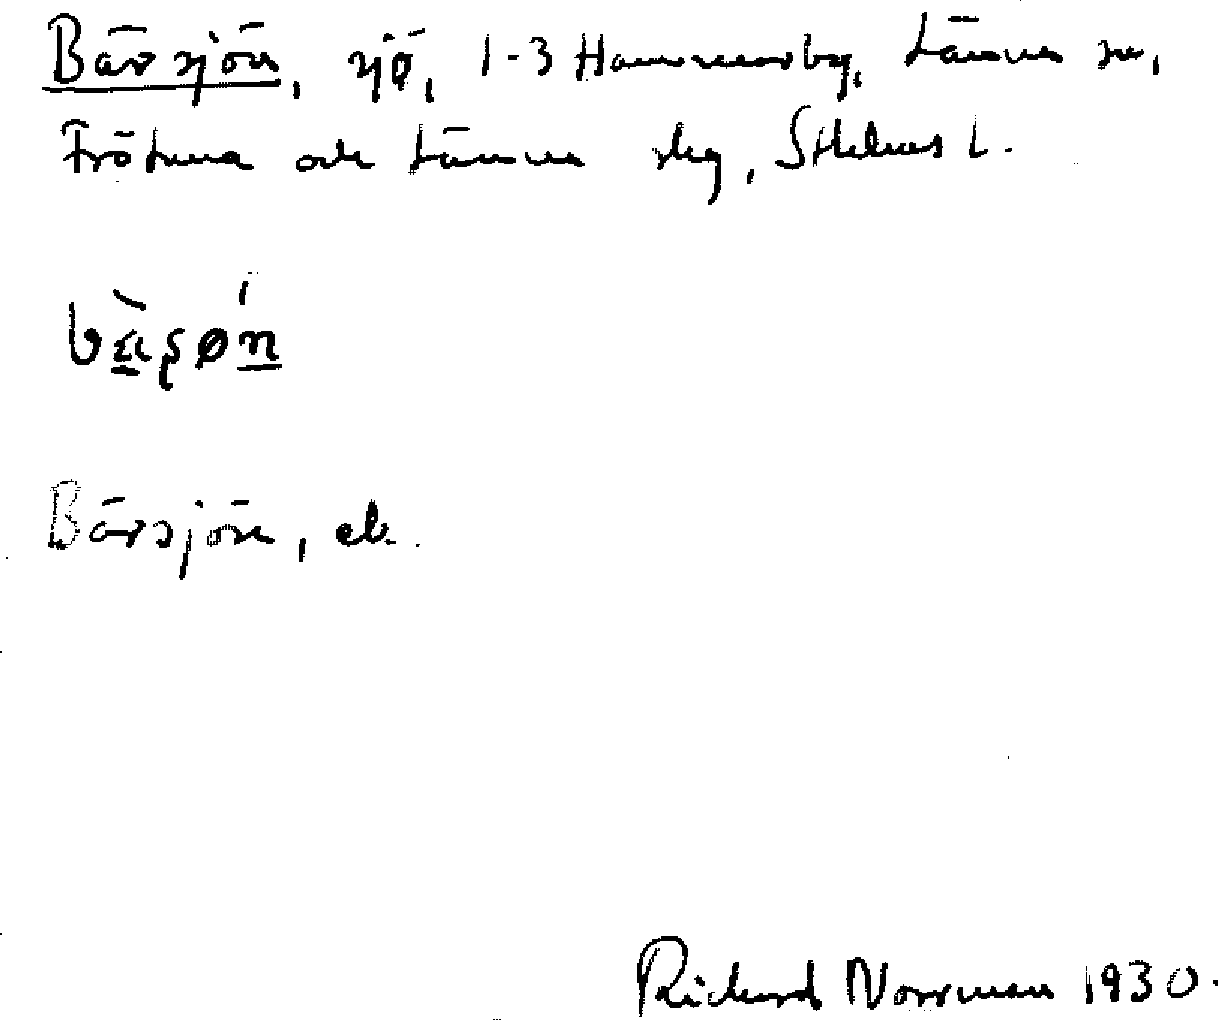 Bärsjön, sjö, 1-3 Hammarby, Länna sn,
Frötuna och Länna skg, Sthlms l.
Bärsjön, ek.
Richard Norrman 1930.